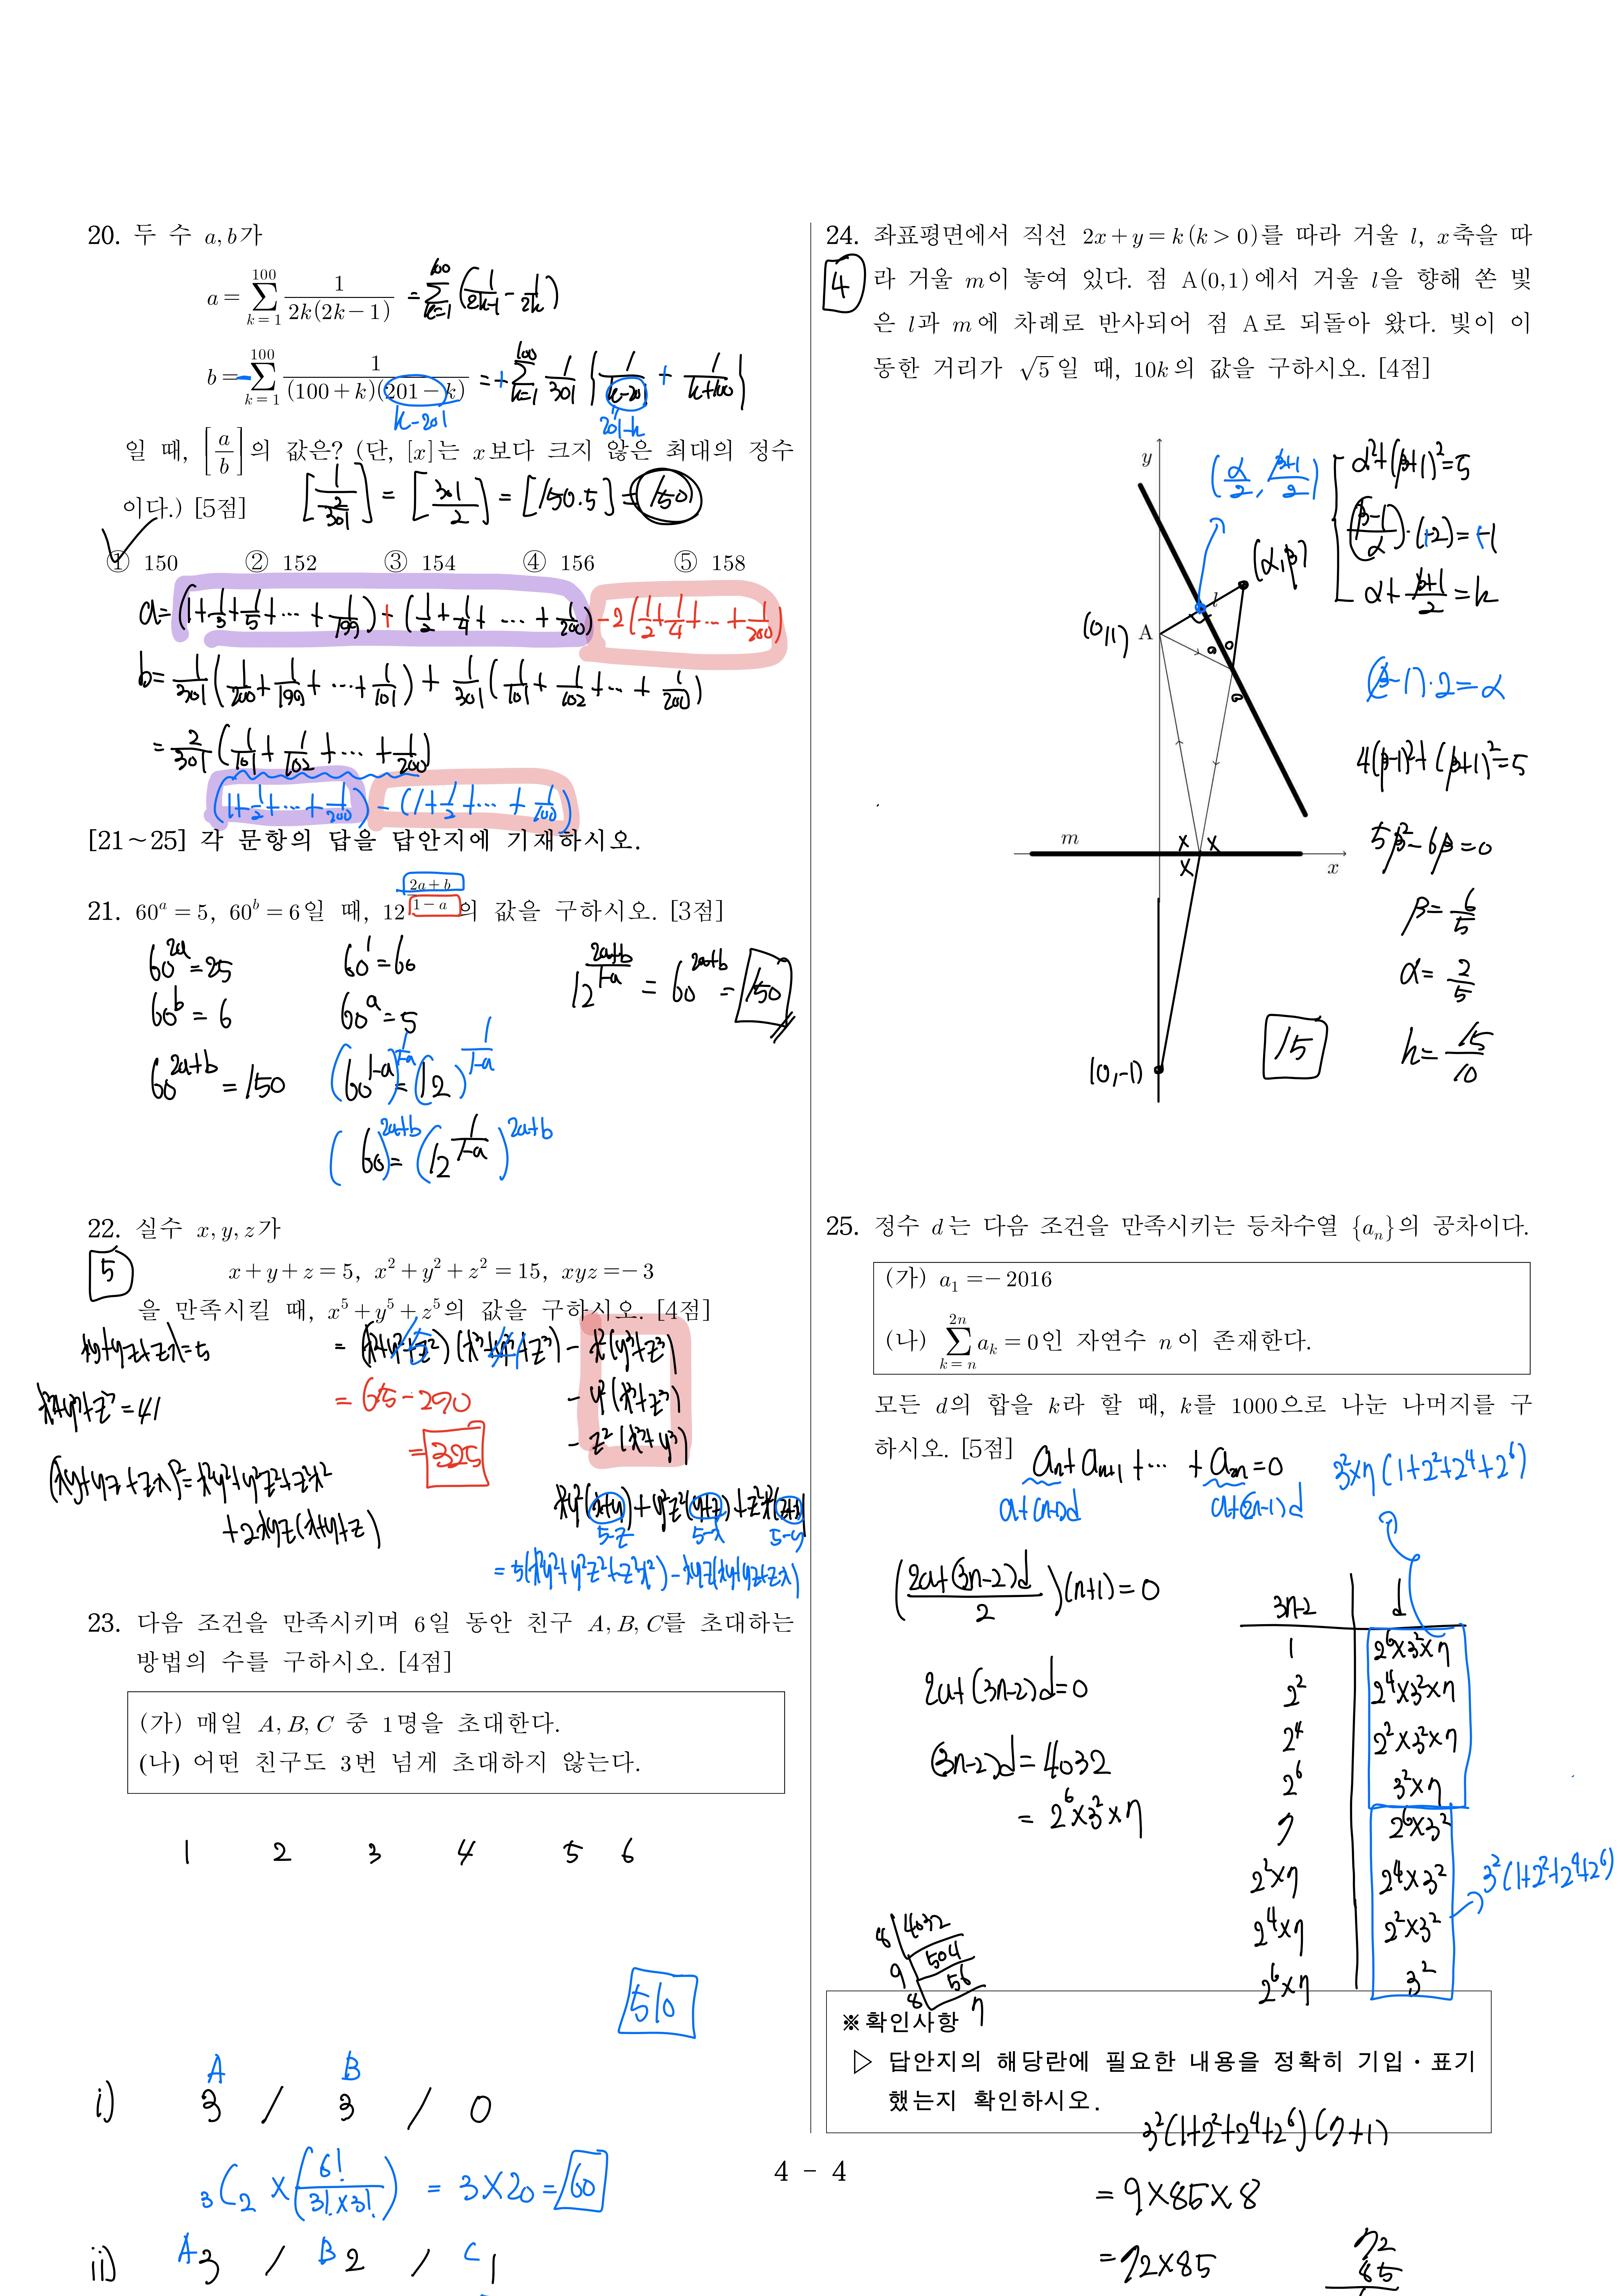 20. 두 수 a, b가
a = ∑_{k=1}^{100} 1/(2k(2k−1)) = ∑_{k=1}^{100} (1/(2k-1) - 1/2k)
b = ∑_{k=1}^{100} 1/((100+k)(201−k)) = + ∑_{k=1}^{100} 1/301 { 1/(k-201) + 1/(k+100) }
k-201
201-k
일 때, [a/b]의 값은? (단, [x]는 x보다 크지 않은 최대의 정수
이다.) [5점]
[1/(2/301)] = [301/2] = [150.5] = 150
① 150 ② 152 ③ 154 ④ 156 ⑤ 158
a = (1+1/3+1/5+⋯+1/199) + (1/2+1/4+⋯+1/200) -2(1/2+1/4+⋯+1/200)
b = 1/301 (1/200+1/199+⋯+1/101) + 1/301 (1/101+1/102+⋯+1/200)
= 2/301 (1/101+1/102+⋯+1/200)
(1+1/2+⋯+1/200) - (1+1/2+⋯+1/100)
[21～25] 각 문항의 답을 답안지에 기재하시오.
21. 60^a = 5, 60^b = 6일 때, 12^{(2a+b)/(1−a)}의 값을 구하시오. [3점]
60^{2a} = 25 60^1 = 60 12^{(2a+b)/(1-a)} = 60^{2a+b} = 150
60^b = 6 60^a = 5
60^{2a+b} = 150 (60^{1-a})^{1/(1-a)} = (12)^{1/(1-a)}
(60)^{2a+b} = (12^{1/(1-a)})^{2a+b}
22. 실수 x, y, z가
5
x+y+z = 5, x²+y²+z² = 15, xyz = −3
을 만족시킬 때, x⁵+y⁵+z⁵의 값을 구하시오. [4점]
xy+yz+zx=5 = (x²+y²+z²)(x³+y³+z³) - x²(y³+z³)
15 41
x³+y³+z³ = 41 = 615-290 - y²(x³+z³)
= 325 - z²(x³+y³)
(xy+yz+zx)² = x²y²+y²z²+z²x²
+2xyz(x+y+z)
x²y²(x+y)+y²z²(y+z)+z²x²(z+x)
5-z 5-x 5-y
= 5(x²y²+y²z²+z²x²) - xyz(xy+yz+zx)
23. 다음 조건을 만족시키며 6일 동안 친구 A, B, C를 초대하는
방법의 수를 구하시오. [4점]
(가) 매일 A, B, C 중 1명을 초대한다.
(나) 어떤 친구도 3번 넘게 초대하지 않는다.
1 2 3 4 5 6
510
A B
i) 3 / 3 / 0
₃C₂ × (6!/(3!×3!)) = 3×20 = 60
ii) A 3 / B 2 / C 1
24. 좌표평면에서 직선 2x+y = k (k > 0)를 따라 거울 l, x축을 따
4
라 거울 m이 놓여 있다. 점 A(0,1)에서 거울 l을 향해 쏜 빛
은 l과 m에 차례로 반사되어 점 A로 되돌아 왔다. 빛이 이
동한 거리가 √5일 때, 10k의 값을 구하시오. [4점]
y
(α/2, (β+1)/2)
α²+(β+1)²=5
((β-1)/α)·(-2)=-1
(α,β)
α+(β+1)/2=k
l
(0,1) A
(β-1)·2=α
4(β-1)²+(β+1)²=5
m x x
x
x
5β²-6β=0
β=6/5
α=2/5
15 k=15/10
(0,-1)
25. 정수 d는 다음 조건을 만족시키는 등차수열 {a_n}의 공차이다.
(가) a₁ = −2016
(나) ∑_{k=n}^{2n} a_k = 0인 자연수 n이 존재한다.
모든 d의 합을 k라 할 때, k를 1000으로 나눈 나머지를 구
하시오. [5점]
a_n+a_{n+1}+⋯+a_{2n}=0 3²×7(1+2²+2⁴+2⁶)
a+(n-1)d a+(2n-1)d
((2a+(3n-2)d)/2)(n+1)=0
3n-2 d
1 2⁶×3²×7
2a+(3n-2)d=0 2² 2⁴×3²×7
2⁴ 2²×3²×7
(3n-2)d=4032 2⁶ 3²×7
= 2⁶×3²×7 7 2⁶×3²
2²×7 2⁴×3² 3²(1+2²+2⁴+2⁶)
2⁴×7 2²×3²
2⁶×7 3²
8 4032
9 504
8 56
7
※ 확인사항
▷ 답안지의 해당란에 필요한 내용을 정확히 기입・표기
했는지 확인하시오.
3²(1+2²+2⁴+2⁶)(7+1)
4 - 4
= 9×85×8
= 72×85
72
85